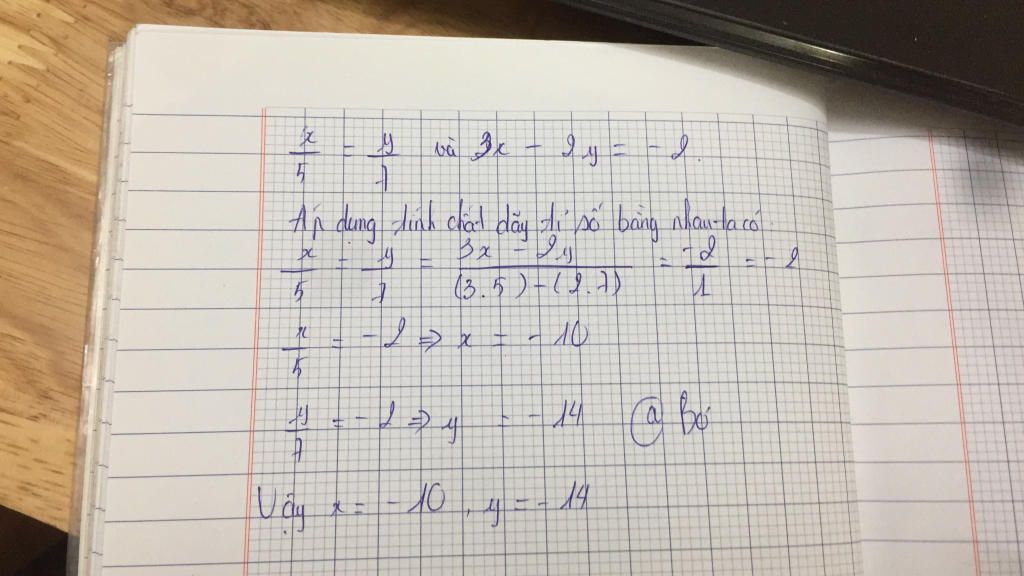 x/5 = y/7 và 3x - 2y = -2.
Áp dụng tính chất dãy tỉ số bằng nhau ta có
x/5 = y/7 = 3x - 2y/(3.5)-(2.7) = -2/1 = -2
x/5 = -2 ⇒ x = -10
y/7 = -2 ⇒ y = -14 @ Bơ
Vậy x = -10, y = -14